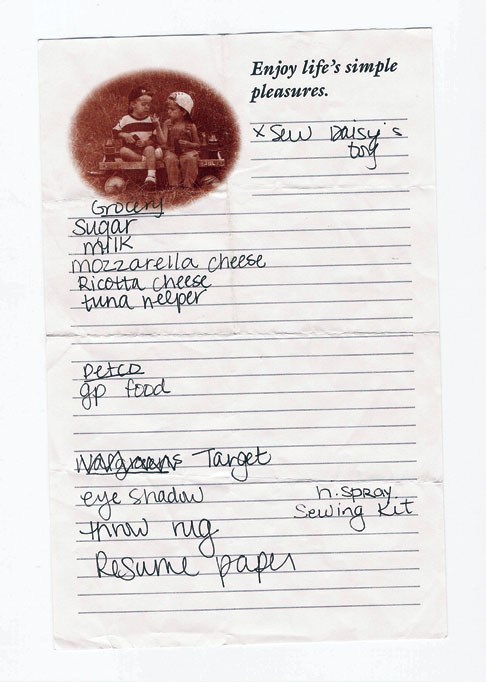 Enjoy life's simple
pleasures.
x Sew Daisy's
toy
Grocery
Sugar
milk
mozzarella cheese
Ricotta cheese
tuna helper
Petco
gp food
Walgreens Target
eye shadow
h. spray
Sewing Kit
throw rug
Resume paper